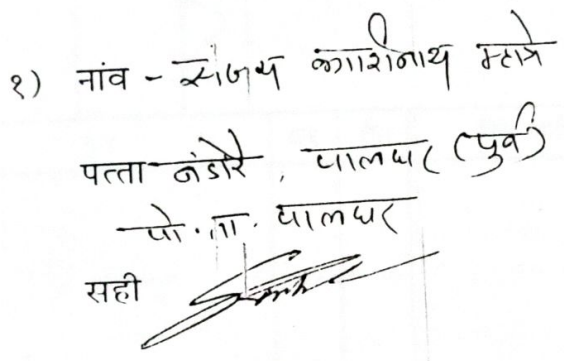 १) नांव - संजय काशीनाथ म्हात्रे
पत्ता नंडोरे, पालघर (पुर्व)
पो. ता. पालघर
सही